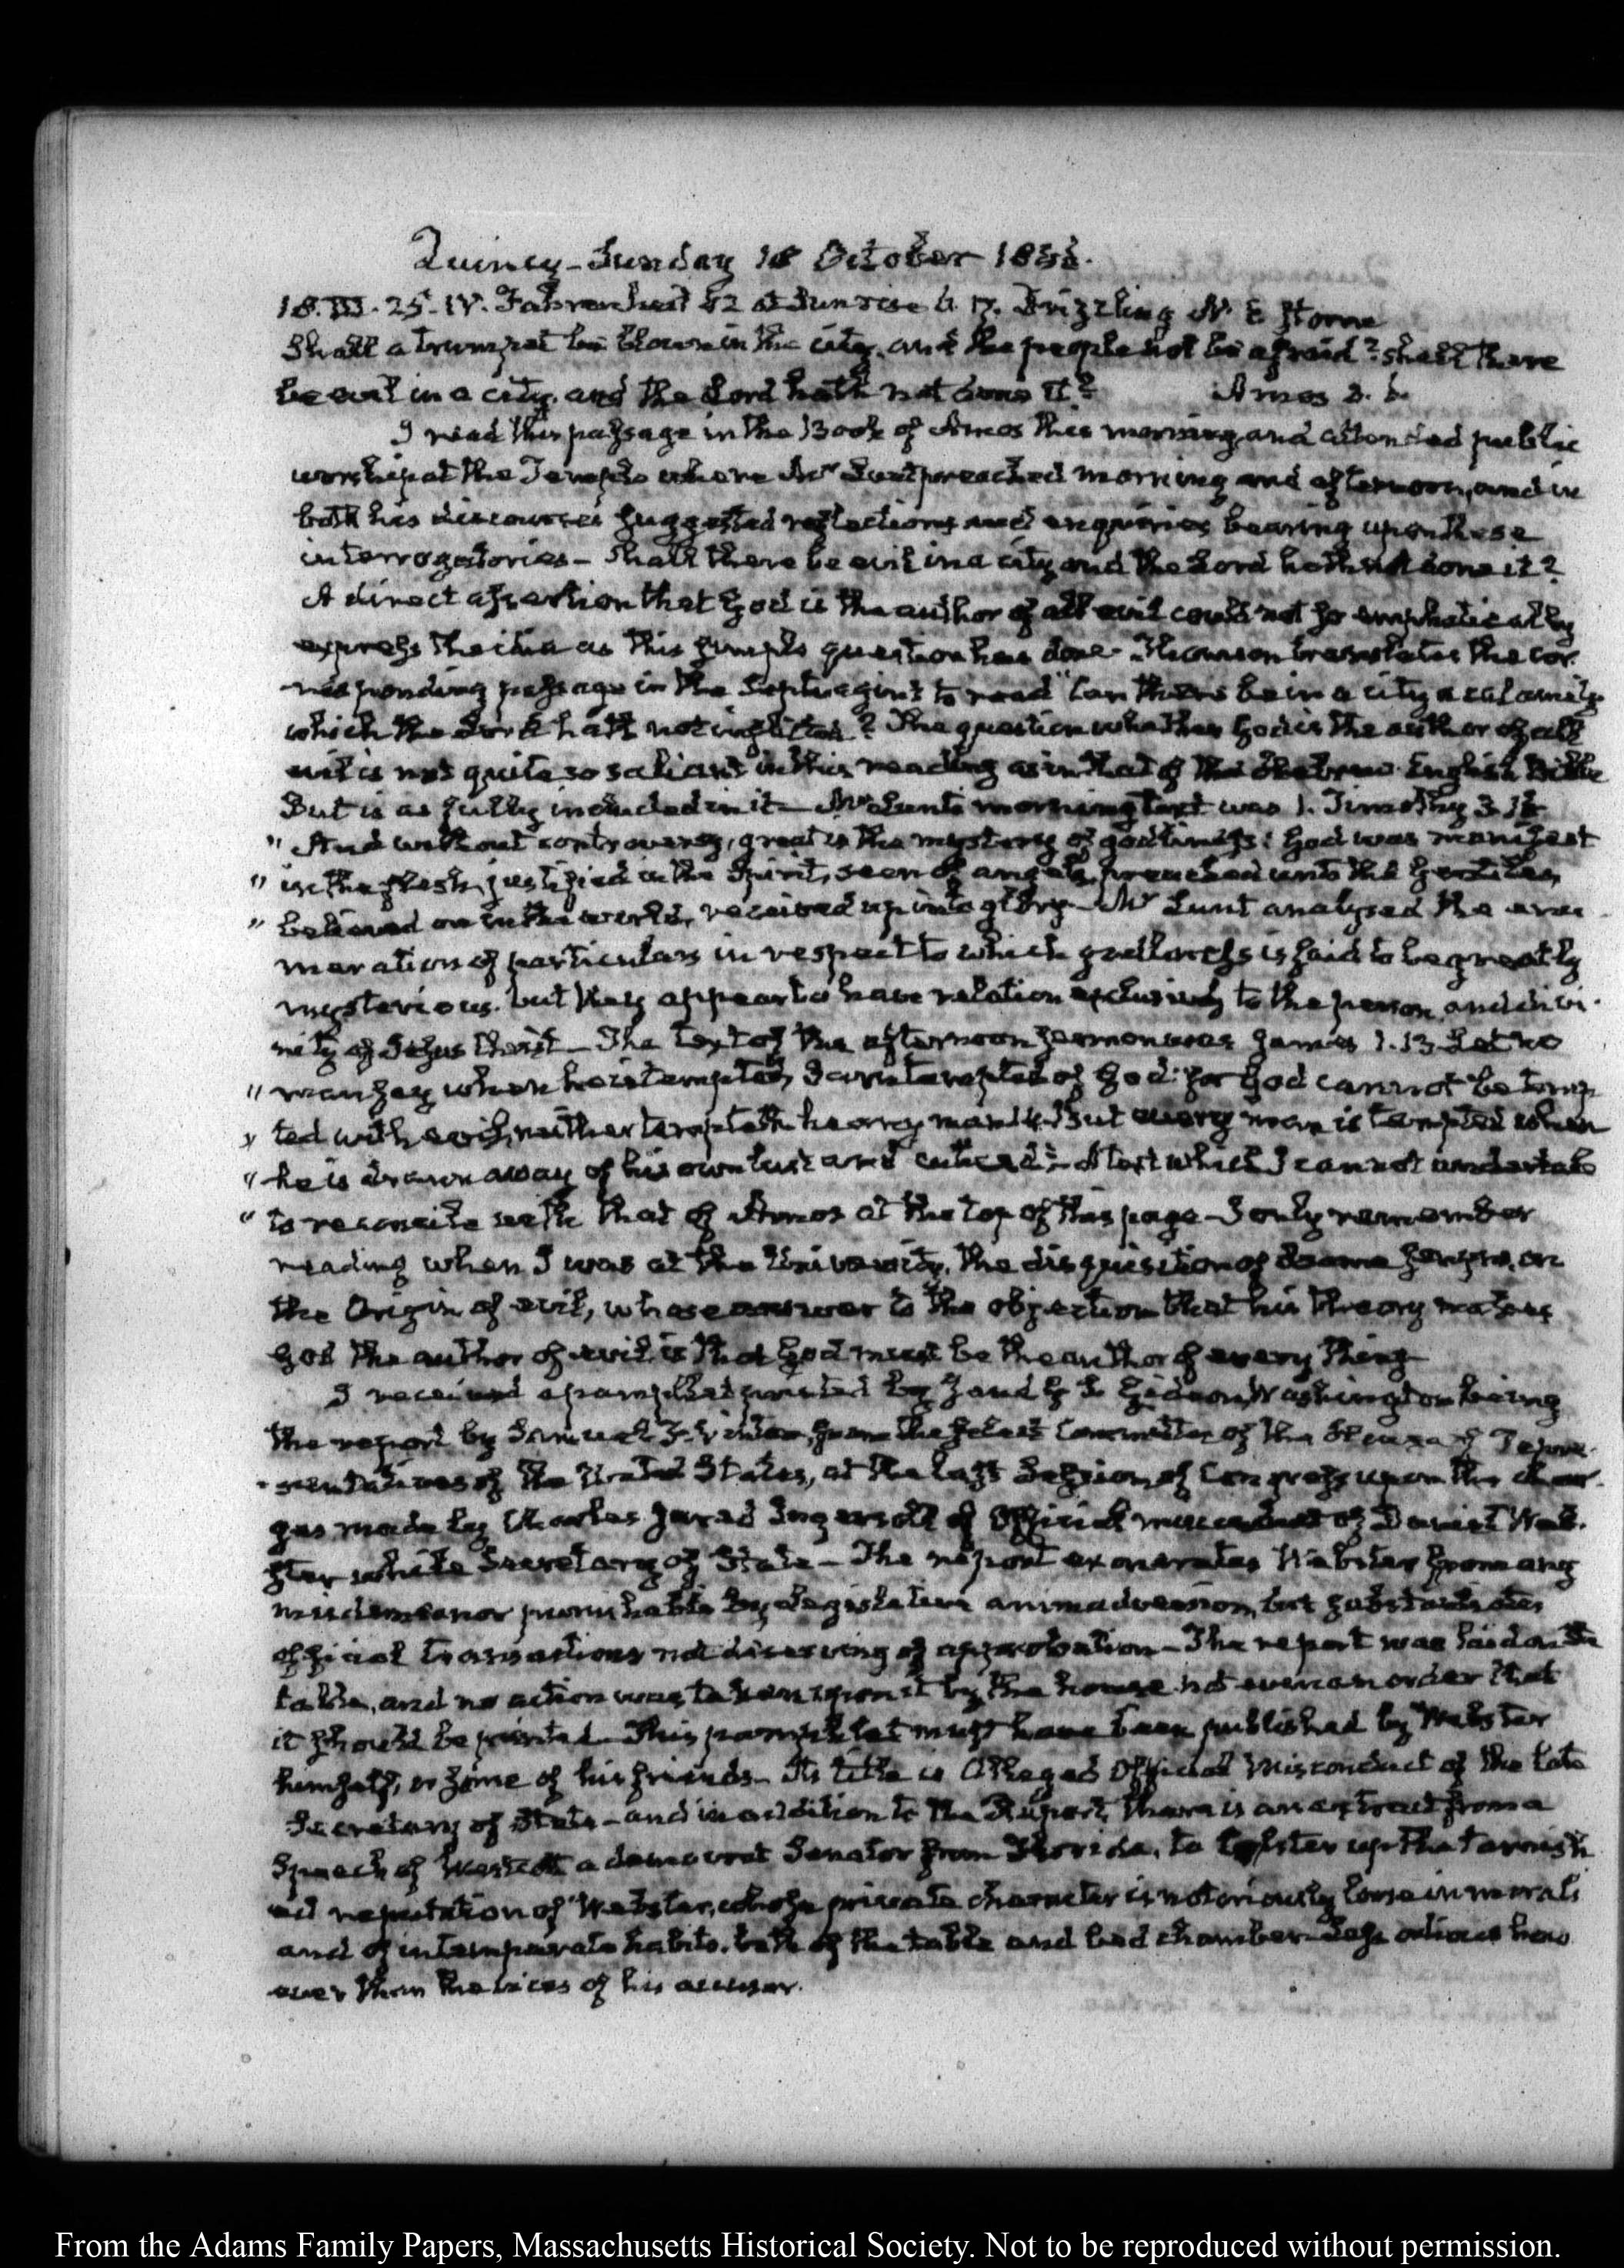 Quincy – Sunday 18 October 1846.
18. III. 25. IV. Fahrenheit 52 at Sunrise 6. 17. Drizzling N. E storm
Shall a trumpet be blown in the city, and the people not be afraid? shall there
be evil in a city, and the Lord hath not done it? Amos 3. 6.
I read this passage in the Book of Amos this morning and attended public
worship at the Temple where Mr Lunt preached morning and afternoon, and in
both his discourses suggested reflections and enquiries bearing upon these
interrogatories – Shall there be evil in a city and the Lord hath not done it?
A direct assertion that God is the author of all evil could not so emphatically
express the idea as this simple question has done. Thomson translates the cor-
-responding passage in the Septuagint to read "Can there be in a city a calamity
which the Lord hath not inflicted? The question whether God is the author of all
evil is not quite so salient in this reading as in that of the Hebrew English Bible
But is as fully included in it – Mr Lunt's morning text was 1. Timothy 3. 16
" And without controversy, great is the mystery of godliness: God was manifest
" in the flesh, justified in the Spirit, seen of angels, preached unto the Gentiles,
" believed on in the world, received up into glory – Mr Lunt analysed the enu-
meration of particulars in respect to which godliness is said to be greatly
mysterious. but they appear to have relation exclusively to the person and divi-
nity of Jesus Christ – The text of the afternoon sermon was James 1. 13 Let no
" man say when he is tempted, I am tempted of God: for God cannot be temp
" ted with evil, neither tempteth he any man 14. But every man is tempted when
" he is drawn away of his own lust and enticed" – A text which I cannot undertake
" to reconcile with that of Amos at the top of this page – I only remember
reading when I was at the University, the disquisition of Soame Jenyns, on
the Origin of evil, whose answer to the objection that his theory makes
God the author of evil is that God must be the author of every thing
I received a pamphlet printed by J and G. S. Gideon, Washington being
the report by Samuel F. Vinton, from the select Committee of the House of Repre-
-sentatives of the United States, at the last Session of Congress upon the char-
ges made by Charles Jared Ingersoll of Official misconduct of Daniel Web-
ster while Secretary of State – The report exonerates Webster from any
misdemeanor punishable by legislative animadversion, but substantiates
official transactions not deserving of approbation – The report was laid on the
table, and no action was taken upon it by the house not even an order that
it should be printed. This pamphlet must have been published by Webster
himself, or some of his friends – Its title is Alleged Official Misconduct of the late
Secretary of State – and in addition to the Report, there is an extract from a
Speech of Westcott a democrat Senator from Florida, to bolster up the tarnish
ed reputation of Webster, whose private character is notoriously loose in morals
and of intemperate habits, both of the table and bed chamber. Less odious how
ever than the vices of his accuser.
From the Adams Family Papers, Massachusetts Historical Society. Not to be reproduced without permission.